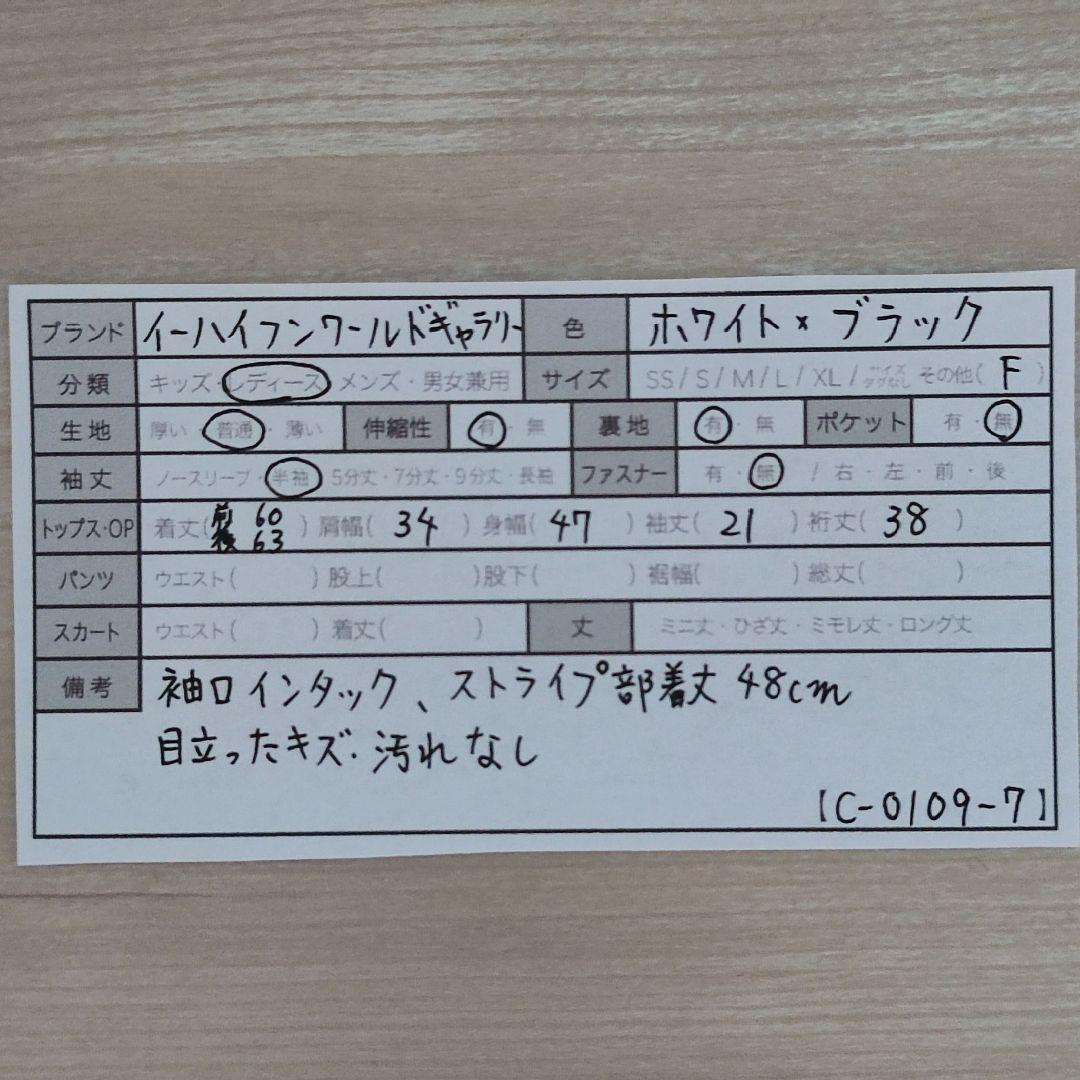 ブランド イーハイフンワールドギャラリー 色 ホワイト×ブラック
分類 キッズ・レディース・メンズ・男女兼用 サイズ SS/S/M/L/XL/サイズタグなし その他( F )
生地 厚い・普通・薄い 伸縮性 有・無 裏地 有・無 ポケット 有・無
袖丈 ノースリーブ・半袖・5分丈・7分丈・9分丈・長袖 ファスナー 有・無 / 右・左・前・後
トップス・OP 着丈(前60 後63) 肩幅( 34 ) 身幅( 47 ) 袖丈( 21 ) 裄丈( 38 )
パンツ ウエスト( ) 股上( ) 股下( ) 裾幅( ) 総丈( )
スカート ウエスト( ) 着丈( ) 丈 ミニ丈・ひざ丈・ミモレ丈・ロング丈
備考 袖口インタック、ストライプ部着丈48cm
目立ったキズ・汚れなし
【C-0109-7】